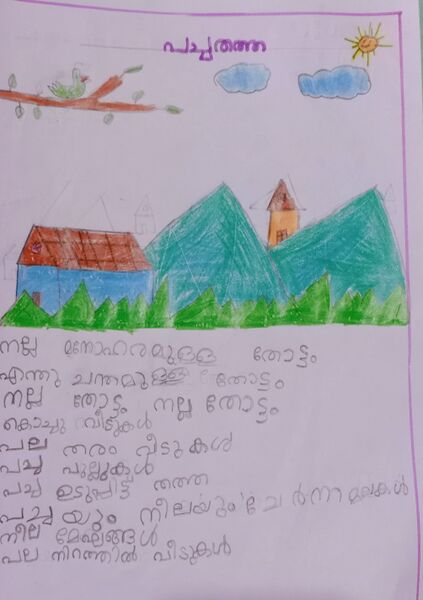 പച്ചതത്ത
നല്ല മനോഹരമുള്ള തോട്ടം
എന്തു ചന്തമുള്ള തോട്ടം
നല്ല തോട്ടം നല്ല തോട്ടം
കൊച്ചു വീടുകൾ
പല തരം വീടുകൾ
പച്ച പുല്ലുകൾ
പച്ച ഉടുപ്പിട്ട തത്ത
പച്ചയും നീലയും ചേർന്ന മലകൾ
നീല മേഘങ്ങൾ
പല നിറത്തിൽ വീടുകൾ